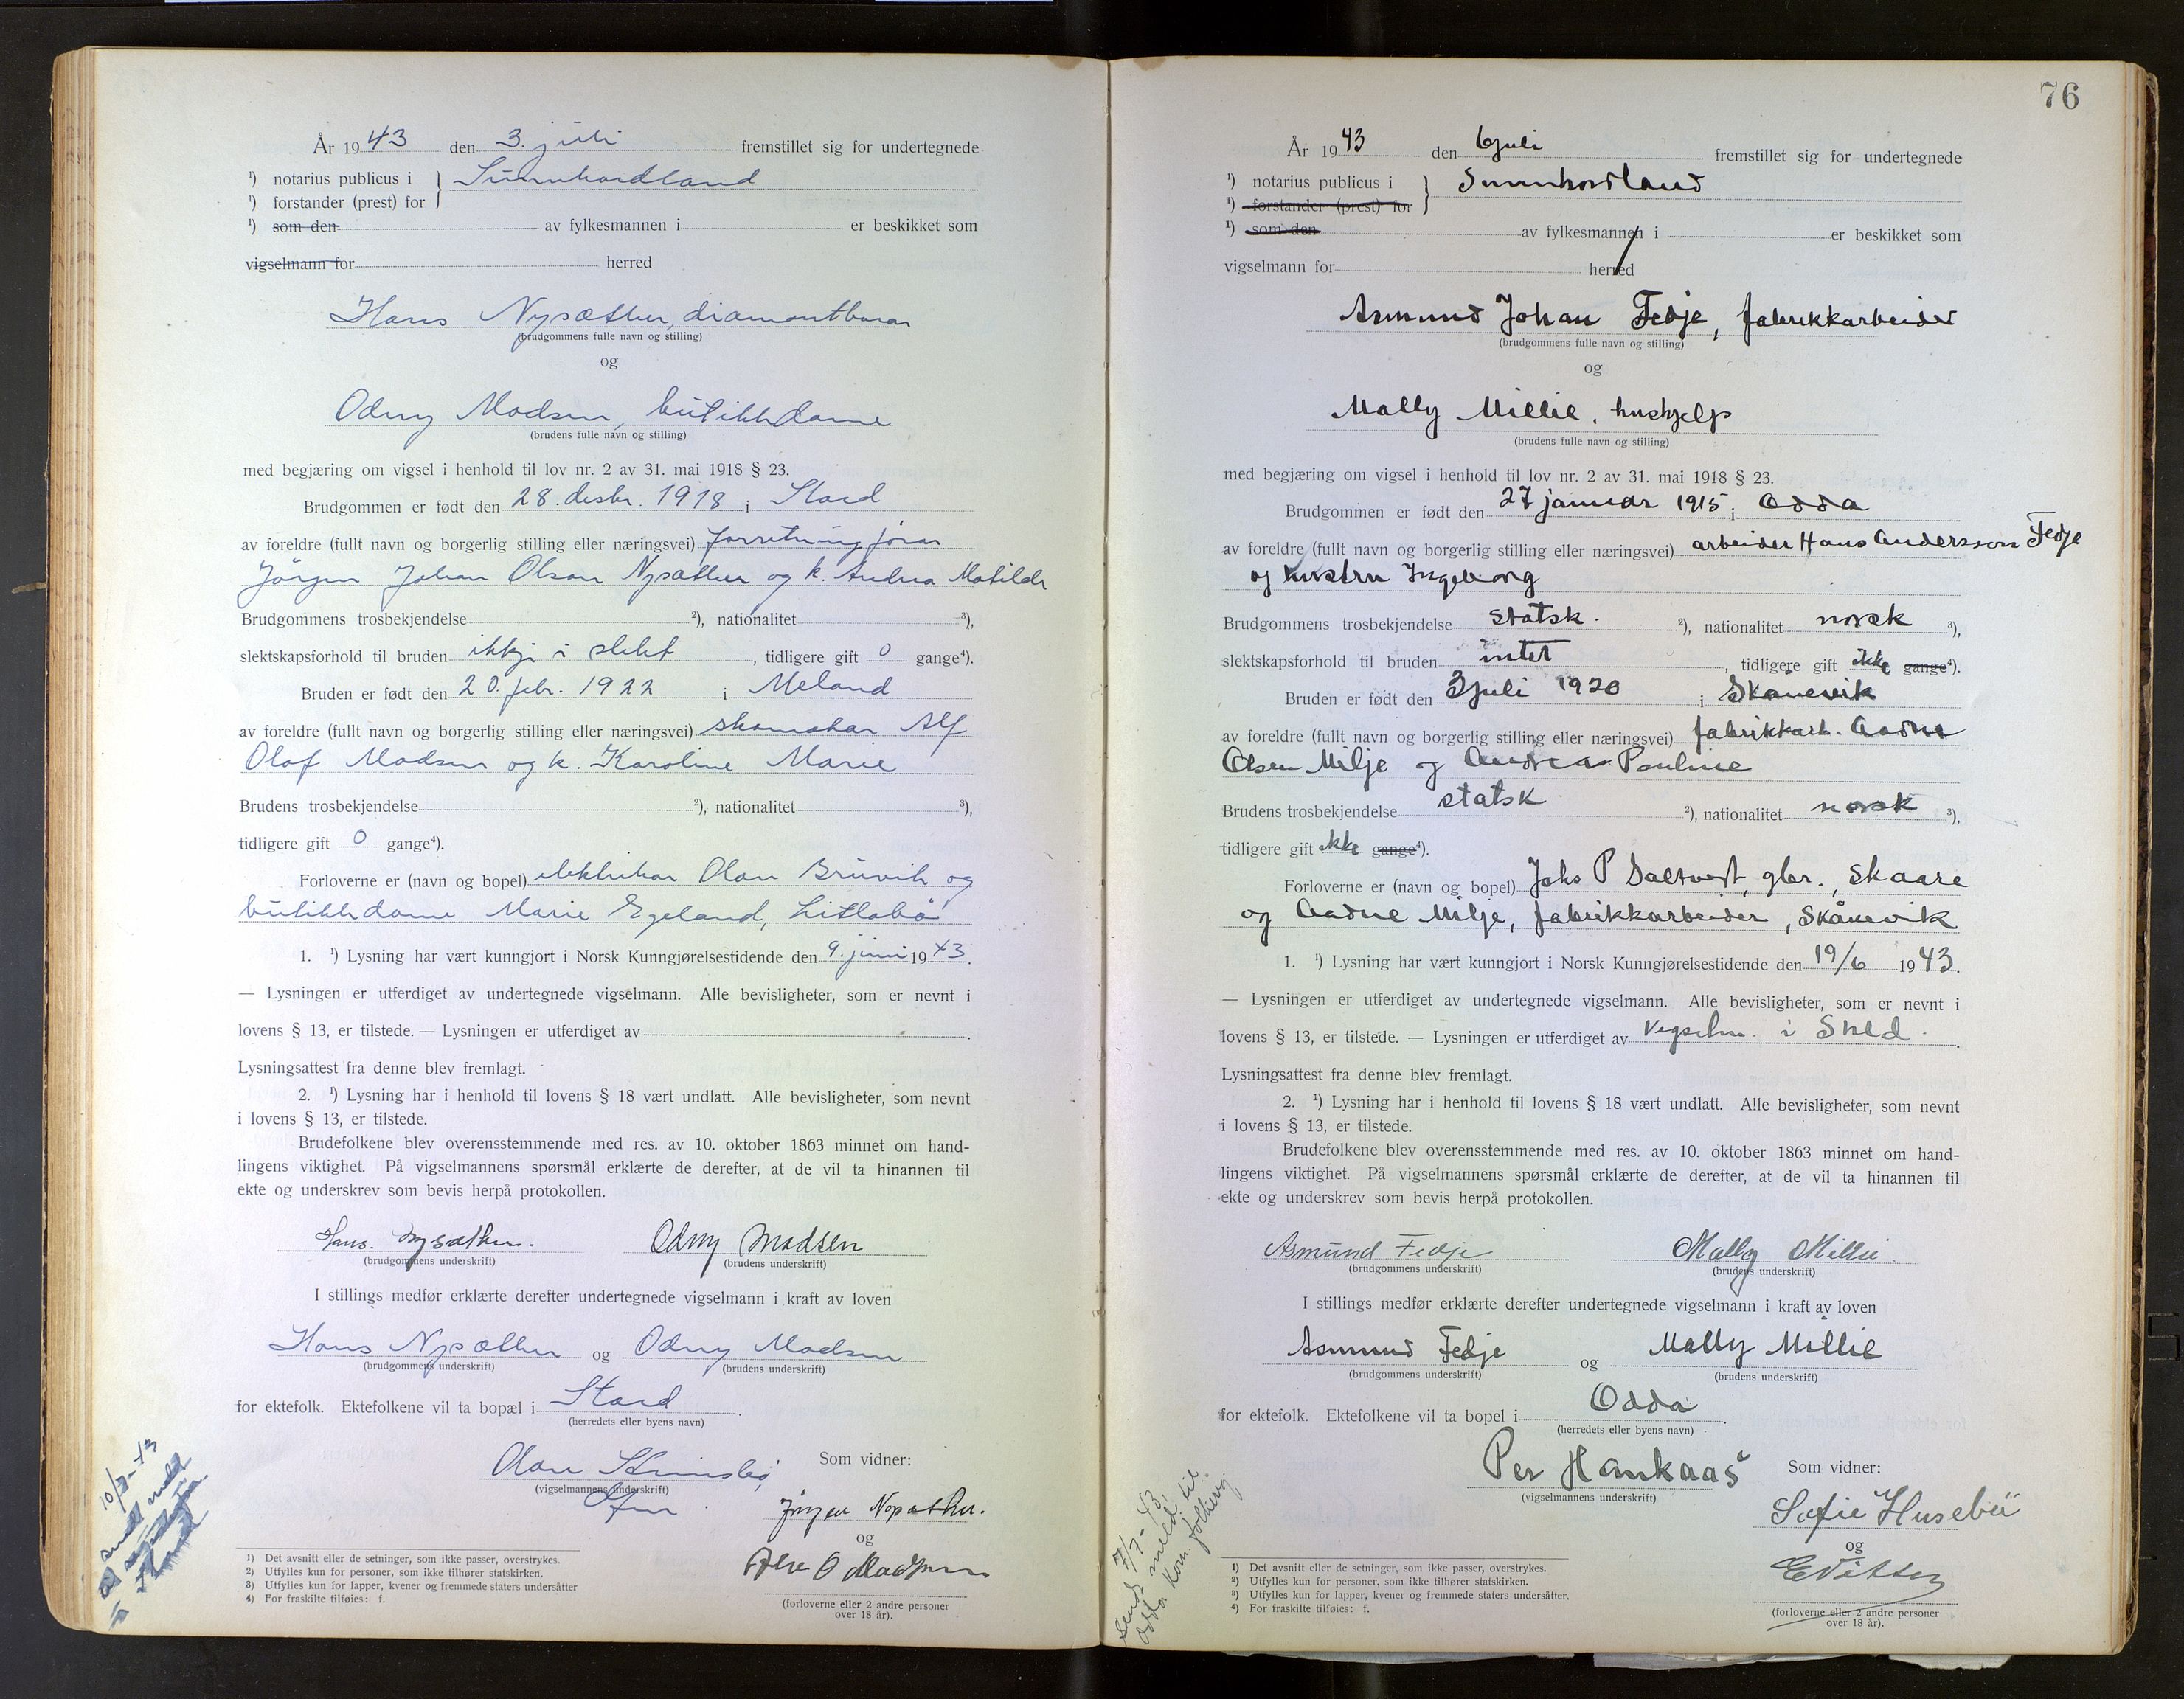 År 1943 den 3. juli fremstillet sig for undertegnede
¹) notarius publicus i } Sunnhordland
¹) forstander (prest) for
¹) som den av fylkesmannen i er beskikket som
vigselmann for herred
Hans Nysæther, diamantborar
(brudgommens fulle navn og stilling)
og
Odny Madsen, butikkdame
(brudens fulle navn og stilling)
med begjæring om vigsel i henhold til lov nr. 2 av 31. mai 1918 § 23.
Brudgommen er født den 28. desbr. 1918 i Stord
av foreldre (fullt navn og borgerlig stilling eller næringsvei) forretningsførar
Jörgen Johan Olson Nysæther og k. Andrea Matilde
Brudgommens trosbekjendelse ²), nationalitet ³),
slektskapsforhold til bruden ikkje i slekt, tidligere gift 0 gange⁴).
Bruden er født den 20. febr. 1922 i Meland
av foreldre (fullt navn og borgerlig stilling eller næringsvei) skomakar Alf
Olaf Madsen og k. Karoline Marie
Brudens trosbekjendelse ²), nationalitet ³),
tidligere gift 0 gange⁴).
Forloverne er (navn og bopel) elektrikar Olav Bruvik og
butikkdame Marie Egeland, Litlabø
1. ¹) Lysning har vært kunngjort i Norsk Kunngjørelsestidende den 9. juni 1943.
— Lysningen er utferdiget av undertegnede vigselmann. Alle bevisligheter, som er nevnt i
lovens § 13, er tilstede. — Lysningen er utferdiget av .
Lysningsattest fra denne blev fremlagt.
2. ¹) Lysning har i henhold til lovens § 18 vært undlatt. Alle bevisligheter, som nevnt
i lovens § 13, er tilstede.
Brudefolkene blev overensstemmende med res. av 10. oktober 1863 minnet om hand-
lingens viktighet. På vigselmannens spørsmål erklærte de derefter, at de vil ta hinannen til
ekte og underskrev som bevis herpå protokollen.
Hans. Nysæther. Odny Madsen
(brudgommens underskrift) (brudens underskrift)
I stillings medfør erklærte derefter undertegnede vigselmann i kraft av loven
Hans Nysæther og Odny Madsen
(brudgommens underskrift) (brudens underskrift)
for ektefolk. Ektefolkene vil ta bopæl i Stord.
(herredets eller byens navn)
Olav Som vidner:
(vigselmannens underskrift)
Jørgen Nysæther.
og
Madsen
(forloverne eller 2 andre personer
over 18 år).
10/7-43
sendt meld
1) Det avsnitt eller de setninger, som ikke passer, overstrykes.
2) Utfylles kun for personer, som ikke tilhører statskirken.
3) Utfylles kun for lapper, kvener og fremmede staters undersåtter
4) For fraskilte tilføies: f.
76
År 1943 den 6 juli fremstillet sig for undertegnede
¹) notarius publicus i } Sunnhordland
¹) forstander (prest) for
¹) som den av fylkesmannen i er beskikket som
vigselmann for herred
Asmund Johan Fedje, fabrikkarbeider
(brudgommens fulle navn og stilling)
og
Mally Millie, hushjelp
(brudens fulle navn og stilling)
med begjæring om vigsel i henhold til lov nr. 2 av 31. mai 1918 § 23.
Brudgommen er født den 27 januar 1915 i Odda
av foreldre (fullt navn og borgerlig stilling eller næringsvei) arbeider Hans Anderssen Fedje
og hustru Ingeborg
Brudgommens trosbekjendelse statsk. ²), nationalitet norsk ³),
slektskapsforhold til bruden intet, tidligere gift ikke gange⁴).
Bruden er født den 3 juli 1920 i Skånevik
av foreldre (fullt navn og borgerlig stilling eller næringsvei) fabrikkarb. Aadne
Olsen Milje og Andrea Pauline
Brudens trosbekjendelse statsk ²), nationalitet norsk ³),
tidligere gift ikke gange⁴).
Forloverne er (navn og bopel) Joks P Saltvedt, gbr., Skaare
og Aadne Milje, fabrikkarbeider, Skånevik
1. ¹) Lysning har vært kunngjort i Norsk Kunngjørelsestidende den 19/6 1943.
— Lysningen er utferdiget av undertegnede vigselmann. Alle bevisligheter, som er nevnt i
lovens § 13, er tilstede. — Lysningen er utferdiget av Vigselm. i .
Lysningsattest fra denne blev fremlagt.
2. ¹) Lysning har i henhold til lovens § 18 vært undlatt. Alle bevisligheter, som nevnt
i lovens § 13, er tilstede.
Brudefolkene blev overensstemmende med res. av 10. oktober 1863 minnet om hand-
lingens viktighet. På vigselmannens spørsmål erklærte de derefter, at de vil ta hinannen til
ekte og underskrev som bevis herpå protokollen.
Asmund Fedje Mally Millie.
(brudgommens underskrift) (brudens underskrift)
I stillings medfør erklærte derefter undertegnede vigselmann i kraft av loven
Asmund Fedje og Mally Millie
(brudgommens underskrift) (brudens underskrift)
for ektefolk. Ektefolkene vil ta bopel i Odda.
(herredets eller byens navn)
Per Haukaas Som vidner:
(vigselmannens underskrift)
Sofie Husebø
og
(forloverne eller 2 andre personer
over 18 år).
Sendt 7/7-43
meld. til
Odda kom. folkereg.
1) Det avsnitt eller de setninger, som ikke passer, overstrykes.
2) Utfylles kun for personer, som ikke tilhører statskirken.
3) Utfylles kun for lapper, kvener og fremmede staters undersåtter.
4) For fraskilte tilføies: f.